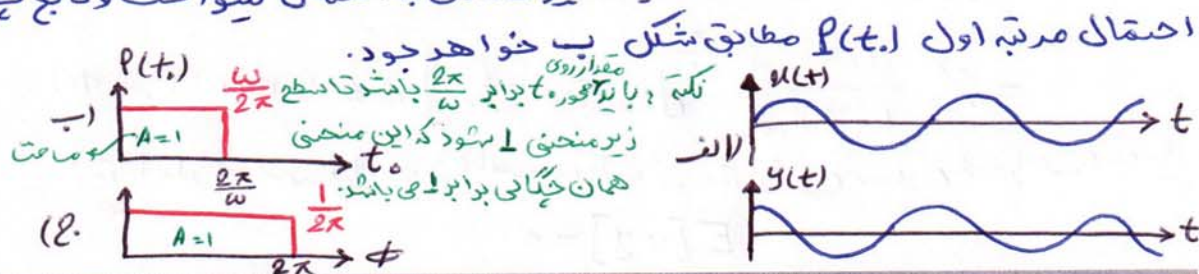 احتمال مرتبه اول P(t₀) مطابق شکل ب خواهد بود.
P(t₀)
ω/2π
ب)
A=1
مساحت
t₀
2π/ω
نکته: باید مقدار روی محور t₀ برابر 2π/ω باشد تا سطح
زیر منحنی 1 شود که این منحنی
همان چگالی برابر 1 می باشد.
الف)
x(t)
t
y(t)
t
ج)
A=1
1/2π
2π
ϕ